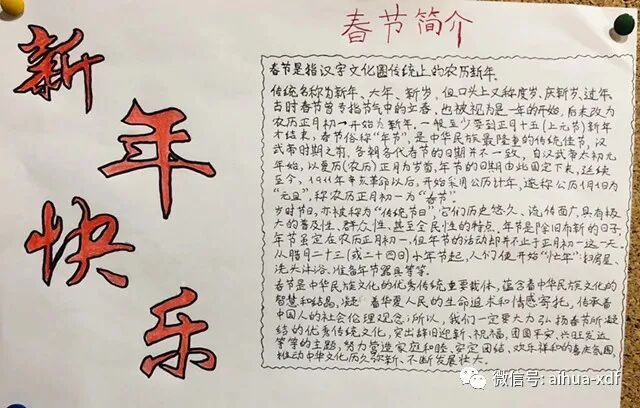 新年快乐
春节简介
春节是指汉字文化圈传统上的农历新年。
传统名称为新年、大年、新岁，但口头上又称度岁、庆新岁、过年。
古时春节曾专指节气中的立春，也被视为是一年的开始，后来改为
农历正月初一开始为新年。一般至少要到正月十五（上元节）新年
才结束，春节俗称"年节"，是中华民族最隆重的传统佳节，汉
武帝时期之前，各朝各代春节的日期并不一致，自汉武帝太初元
年始，以夏历（农历）正月为岁首，年节的日期由此固定下来，延续
至今，1911年辛亥革命以后，开始采用公历计年，遂称公历1月1日为
"元旦"，称农历正月初一为"春节"。
岁时节日，亦被称为"传统节日"，它们历史悠久、流传面广，具有极
大的普及性、群众性、甚至全民性的特点。年节是除旧布新的日子
年节虽定在农历正月初一，但年节的活动却并不止于正月初一这一天
从腊月二十三（或二十四日）小年节起，人们便开始"忙年"：扫房屋、
洗头沐浴、准备年节器具等等。
春节是中华民族文化的优秀传统重要载体，蕴含着中华民族文化的
智慧和结晶，凝 着华夏人民的生命追求和情感寄托，传承着
中国人的社会伦理观念；所以，我们一定要大力弘扬春节所凝
结的优秀传统文化，突出辞旧迎新、祝福、团圆平安、兴旺发达
等等的主题，努力营造家庭和睦、安定团结、欢乐祥和的喜庆氛围，
推动中华文化历久弥新、不断发展壮大。
微信号: aihua-xdf